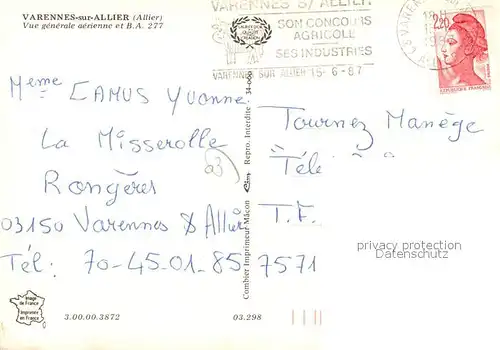 VARENNES-sur-ALLIER (Allier)
Vue générale aérienne et B.A. 277
VARENNES S/ ALLIER
SON CONCOURS
AGRICOLE
SES INDUSTRIES
VARENNES SUR ALLIER 15-6-87
2,20
REPUBLIQUE FRANÇAISE
Mme CAMUS Yvonne
La Misserolle
03
Rongères
03150 Varennes S Allier
Tél: 70-45.01.85
Tournez Manège
Télé
T.F.
7571
Combier Imprimeur Mâcon
Repro. Interdite
privacy protection
Datenschutz
Image
de France
Imprimée
en France
3.00.00.3872
03.298